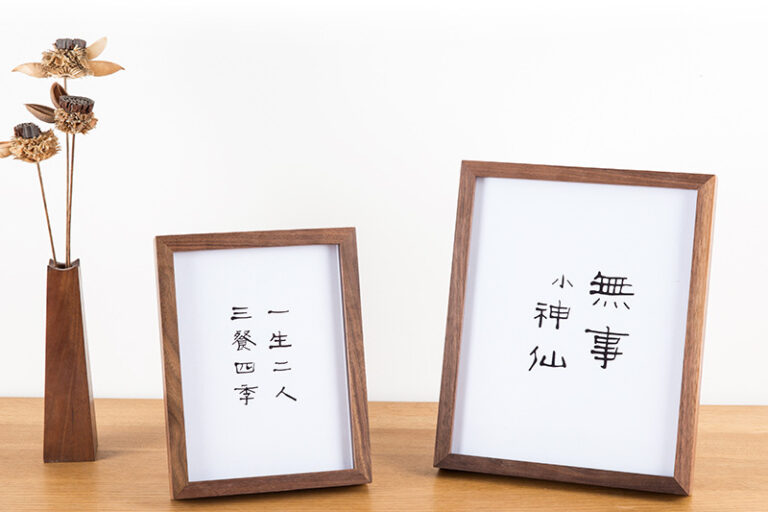 一生二人
三餐四季
無事
小神仙